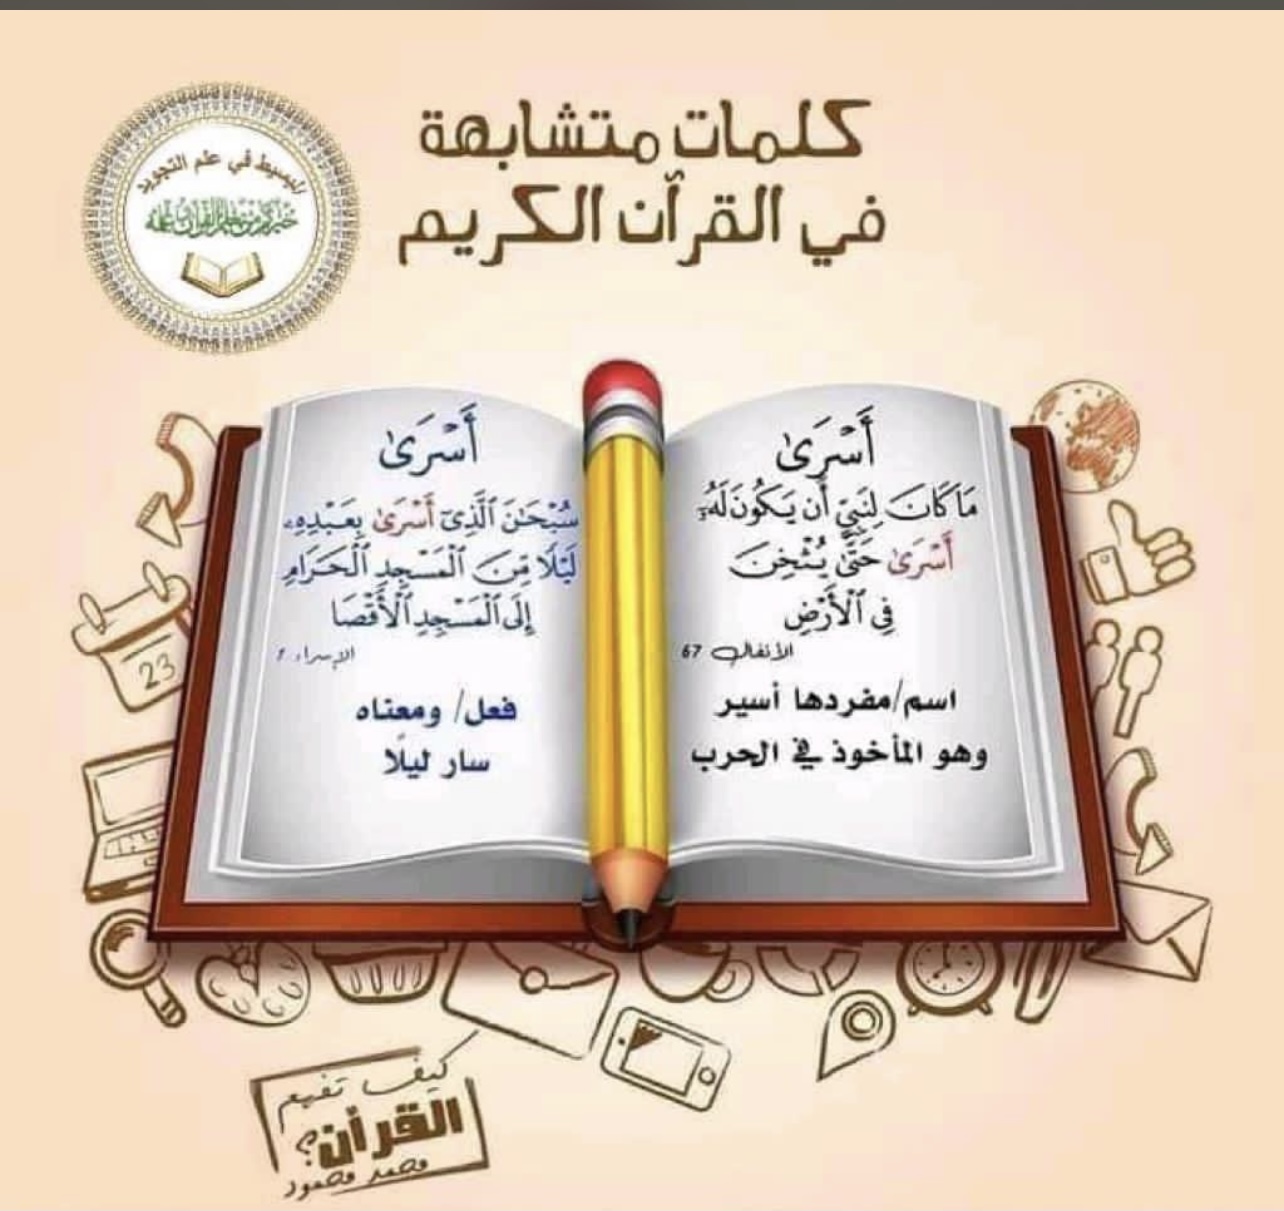 كلمات متشابهة
في القرآن الكريم
البسيط في علم التجويد
خيركم من تعلم القرآن وعلمه
أَسْرَىٰ
مَا كَانَ لِنَبِيٍّ أَن يَكُونَ لَهُۥٓ
أَسْرَىٰ حَتَّىٰ يُثْخِنَ
فِي ٱلْأَرْضِ
الأنفال 67
اسم/مفردها أسير
وهو المأخوذ في الحرب
أَسْرَىٰ
سُبْحَٰنَ ٱلَّذِيٓ أَسْرَىٰ بِعَبْدِهِۦ
لَيْلًا مِّنَ ٱلْمَسْجِدِ ٱلْحَرَامِ
إِلَى ٱلْمَسْجِدِ ٱلْأَقْصَا
الإسراء 1
فعل/ ومعناه
سار ليلًا
23
كيف تفهم
القرآن؟
محمد محمود